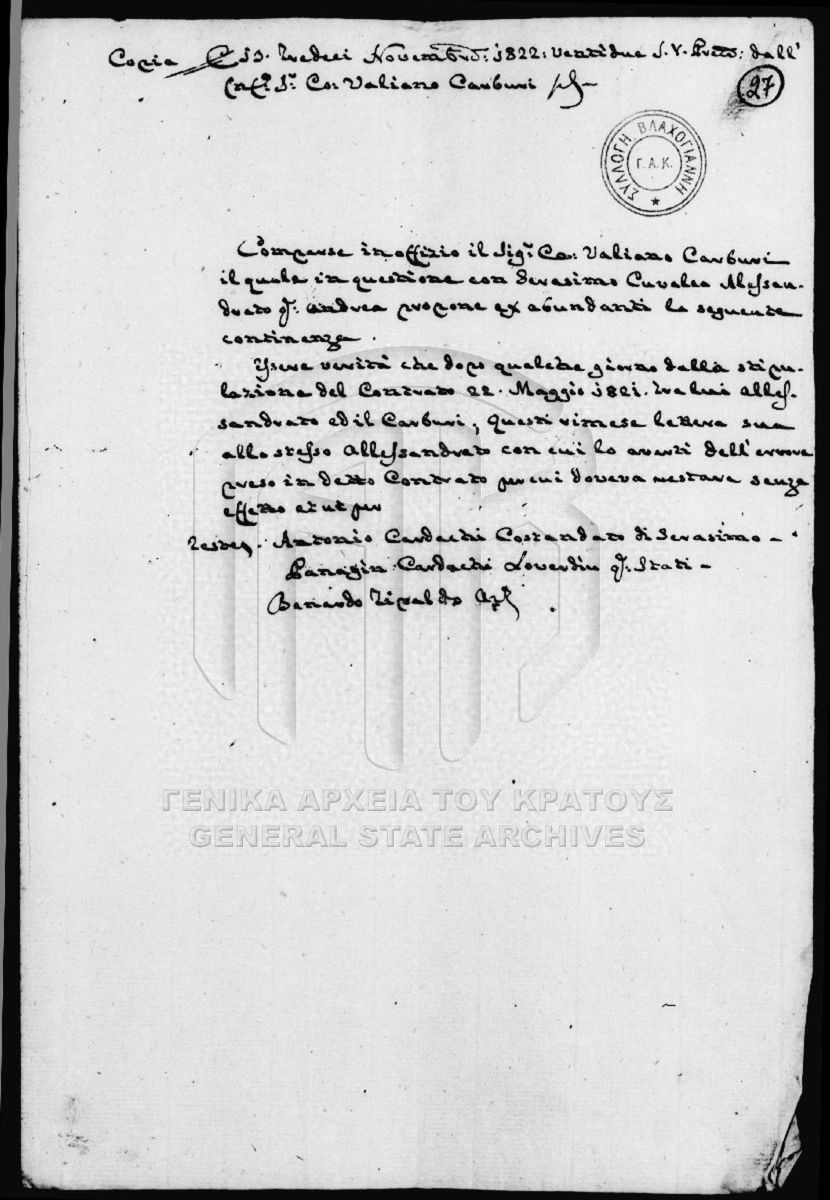 Copia 13. Tredeci Novembre: 1822: ventidue S.V. Preto: dall'
Sr. Co: Valiano Carburi
27
ΣΥΛΛΟΓΗ ΒΛΑΧΟΓΙΑΝΝΗ
Γ.Α.Κ.
Comparse in offizio il Sigr. Co: Valiano Carburi
il quale in questione con Gerasimo Cuvalea Alessan-
drato qm. Andrea propone ex abundanti la seguente
continenza.
Essere verità che dopo qualche giorno dalla stipu-
lazione del Contrato 22. Maggio 1821. tra lui Alles-
sandrato ed il Carburi, questi rimese lettera sua
allo stesso Allessandrato con cui lo avertì dell'errore
preso in detto Contrato per cui doveva restare senza
effetto et ut per
Testes. Antonio Cardachi Costandato di Gerasimo -
Panagin Cardachi Loverdin qm. Stati -
Benardo Tipaldo
ΓΕΝΙΚΑ ΑΡΧΕΙΑ ΤΟΥ ΚΡΑΤΟΥΣ
GENERAL STATE ARCHIVES